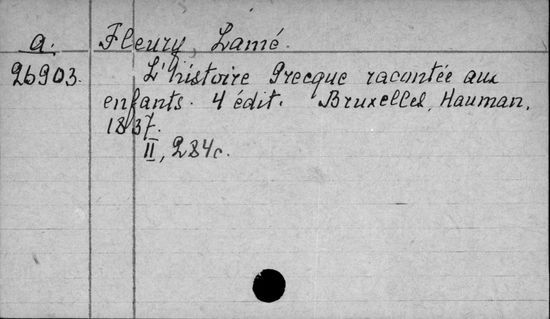 a. Fleury, Lamé.
26903. L'histoire Grecque racontée aux
enfants. 4 édit. Bruxelles, Hauman,
1837.
II, 284c.